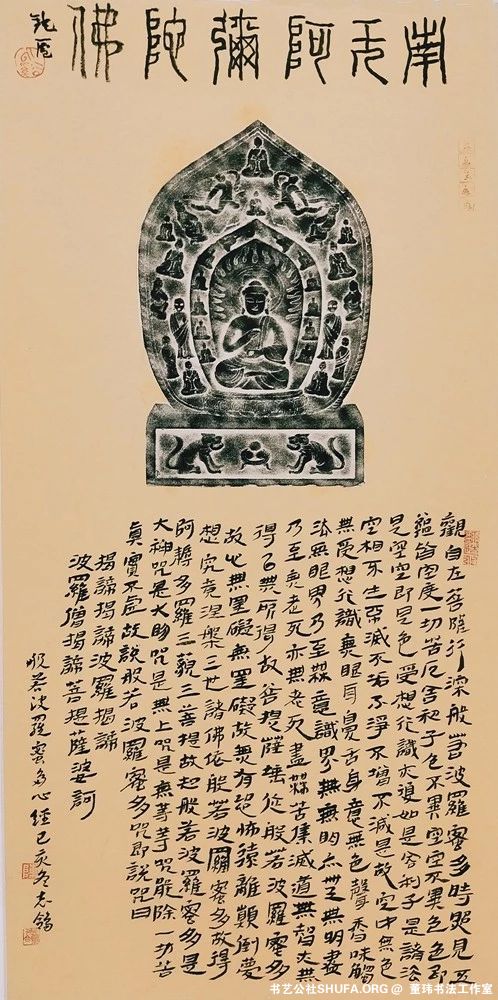 南无阿彌陀佛
觀自在菩薩行深般若波羅蜜多時照見五
蘊皆空度一切苦厄舍利子色不異空空不異色色即
是空空即是色受想行識亦復如是舍利子是諸法
空相不生不滅不垢不淨不增不減是故空中無色
無受想行識無眼耳鼻舌身意無色聲香味觸
法無眼界乃至無意識界無無明亦無無明盡
乃至無老死亦無老死盡無苦集滅道無智亦無
得以無所得故菩提薩埵依般若波羅蜜多
故心無罣礙無罣礙故無有恐怖遠離顛倒夢
想究竟涅槃三世諸佛依般若波羅蜜多故得
阿耨多羅三藐三菩提故知般若波羅蜜多是
大神咒是大明咒是無上咒是無等等咒能除一切苦
真實不虛故說般若波羅蜜多咒即說咒曰
揭諦揭諦波羅揭諦
波羅僧揭諦菩提薩婆訶
般若波羅蜜多心經己亥冬志
书艺公社SHUFA.ORG@ 董玮书法工作室